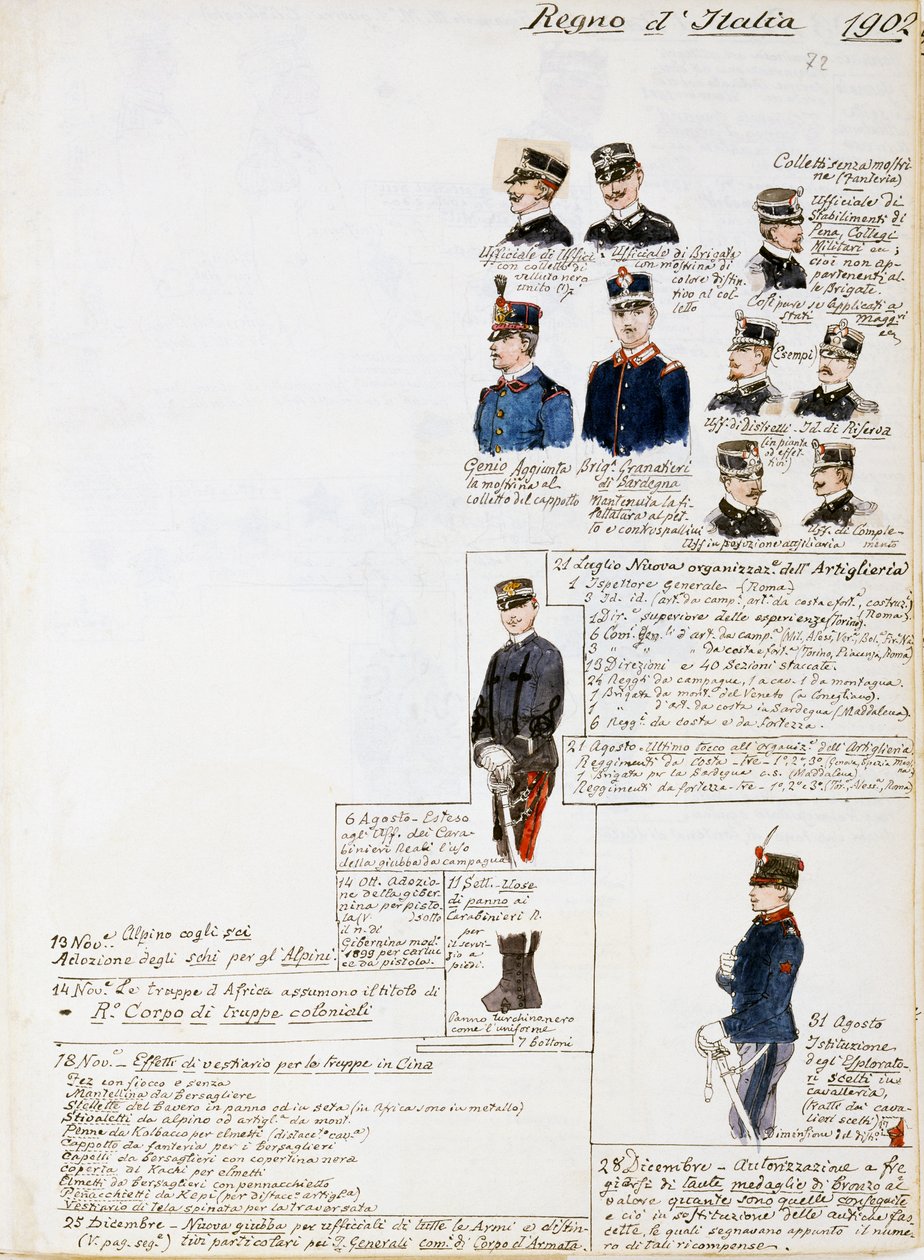 Regno d'Italia 1902
72
Colletti senza mostri-
ne (Fanteria)
Ufficiale di
Stabilimenti di
Pena, Collegi
Militari ecc;
cioè non ap-
partenenti al-
le Brigate.
Così pure se applicati a
Stati Maggri
Ufficiale di Uffici
con colletto di
velluto nero
unito
Ufficiale di Brigata
con mostrina di
colore distin-
tivo al col-
letto
(Esempi)
Uff. di Distretti - Id. di Riserva
(in pianta
ed effet-
tivi)
Genio Aggiunta
la mostrina al
colletto del cappotto
Brig. Granatieri
di Sardegna
Mantenuta la fi-
lettatura al pet-
to e controspallini
Uff. in posizione ausiliaria
Uff. di Comple-
mento
21 Luglio Nuova organizzaz.e dell'Artiglieria
1 Ispettore Generale - (Roma)
3 Id. id. (art. da camp., art. da costa e fort., costruz.)
1 Dir.e superiore delle esperienze (Torino) (Roma)
6 Com. Gen.li d'art. da camp. (Mil. Aless. Ver. Bol. Fir. Na.
3 " " " da costa e fort. (Torino, Piacenza, Roma)
13 Direzioni e 40 Sezioni staccate.
24 Reggti da campagna, 1 a cav. 1 da montagna.
1 Brigata da mont. del Veneto (a Conegliano).
1 " d'art. da costa in Sardegna (Maddalena).
6 Regg.ti da costa e da fortezza.
21 Agosto - Ultimo tocco all'organiz.e dell'Artiglieria
Reggimenti da costa - tre - 1º, 2º, 3º (Genova, Spezia
1 Brigata per la Sardegna c.s. (Maddalena)
Reggimenti da fortezza - tre - 1º, 2º e 3º. (Tor., Aless., Roma)
6 Agosto - Esteso
agli Uff. dei Cara-
binieri Reali l'uso
della giubba da campagna
14 Ott. Adozio-
ne della giber-
nina per pisto-
la (V. ) sotto
il n. di
Gibernina mod.
1899 per cartuc-
ce da pistola.
11 Sett. - Uose
di panno ai
Carabinieri R.
per
il servi-
zio a
piedi.
Panno turchino nero
come l'uniforme
7 bottoni
13 Nov.e Alpino cogli sci
Adozione degli schi per gl'Alpini.
14 Nov.e Le truppe d'Africa assumono il titolo di
R.o Corpo di truppe coloniali
18 Nov.e - Effetti di vestiario per le truppe in Cina
Fez con fiocco e senza
Mantellina da bersagliere
Stellette del bavero in panno od in seta (in Africa sono in metallo)
Stivaletti da alpino od artigl.a da mont.
Penne da Kolbacco per elmetti (distacc.i cav.a)
Cappotto da fanteria per i bersaglieri
Capelli da bersaglieri con copertina nera
coperta di Kachi per elmetti
Elmetti da bersaglieri con pennacchietto
Penacchietti da Kepì (per distacc. artigl.a)
Vestiario di tela spinata per la traversata
25 Dicembre - Nuova giubba per ufficiali di tutte le Armi e distin-
(V. pag. seg.e) tivi particolari pei T. Generali com.ti di Corpo d'Armata.
31 Agosto
Istituzione
degl'Esplorato-
ri scelti in
cavalleria,
(tratti dai cava-
lieri scelti)
Diminsione
28 Dicembre - Autorizzazione a fre
giarsi di tante medaglie di bronzo al
valore quante sono quelle conseguite
e ciò in sostituzione delle antiche fas
cette, le quali segnavano appunto il nume
ro di tali ricompense.